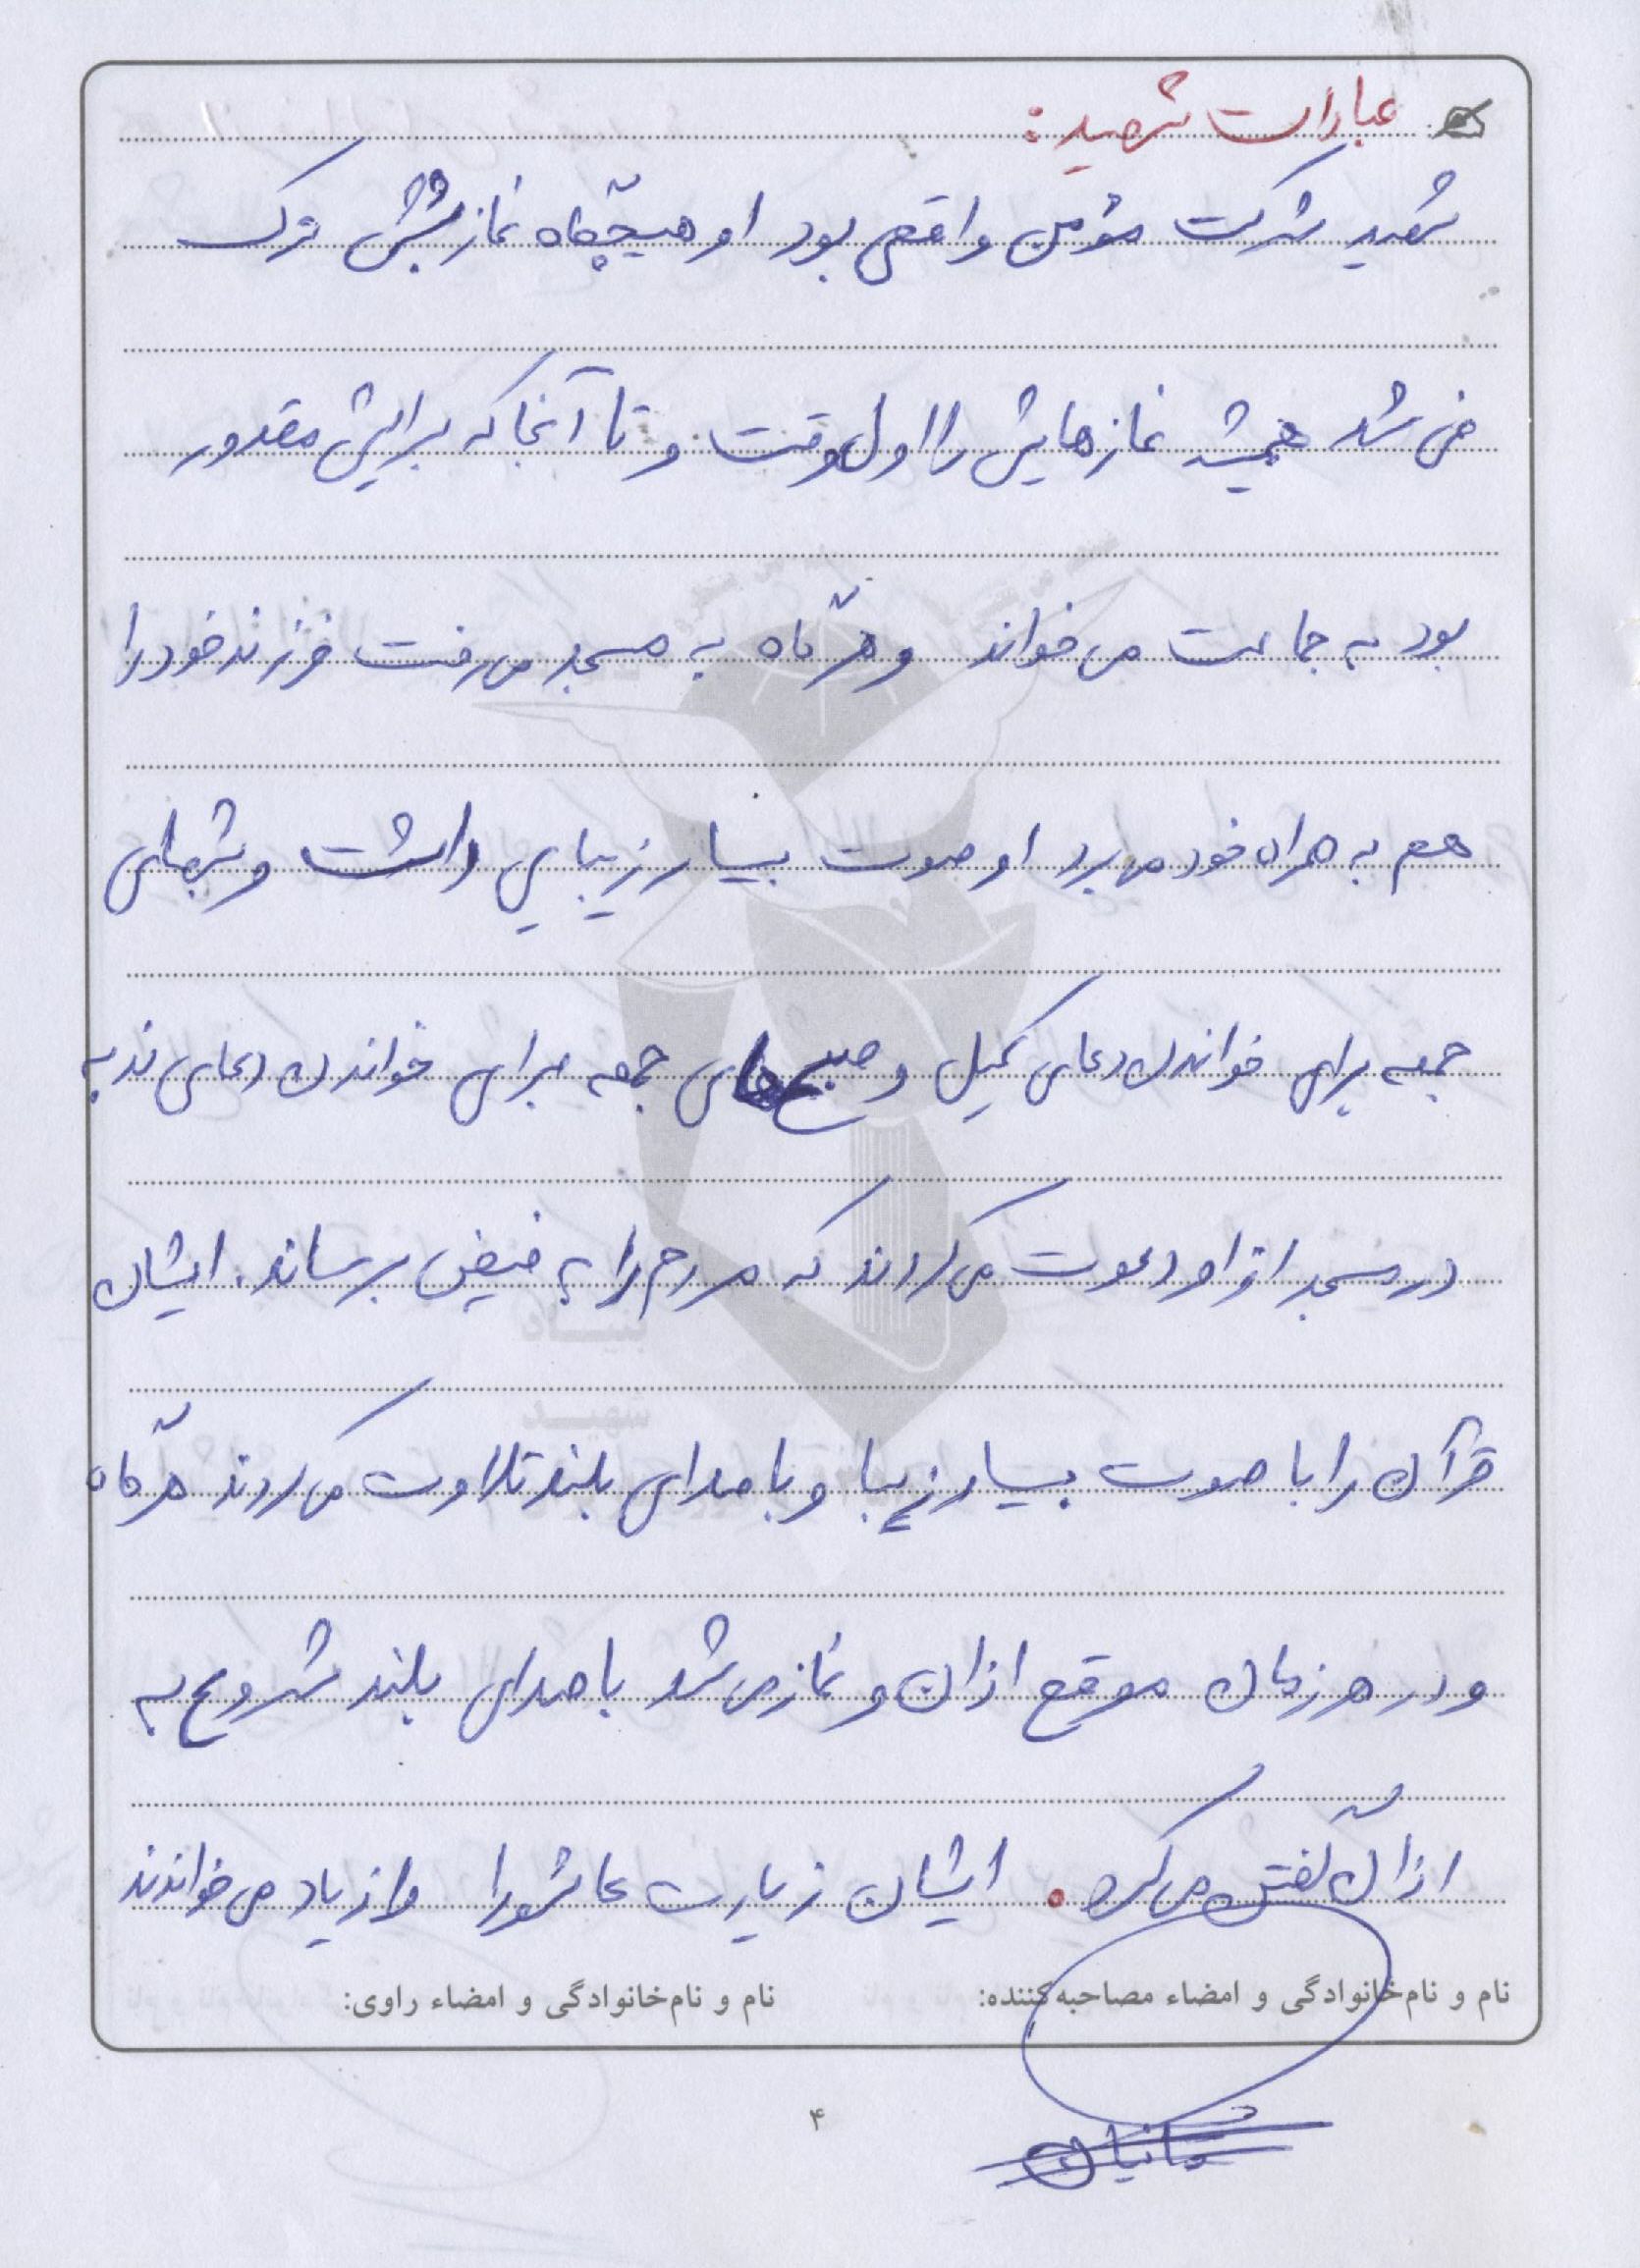 عبادات شهید:
شهید شرکت مؤمن واقعی بود او هیچگاه نمازش ترک
نمی شد همیشه نمازهایش را اول وقت و تا آنجا که برایش مقدور
بود به جماعت می خواند و هرگاه به مسجد می رفت فرزند خود را
هم به همراه خود می برد او صوت بسیار زیبایی داشت و شبهای
جمعه برای خواندن دعای کمیل و صبح های جمعه برای خواندن دعای ندبه
در مسجد از او دعوت می کردند که مردم را به فیض برساند. ایشان
قرآن را با صوت بسیار زیبا و با صدای بلند تلاوت می کردند هرگاه
و در هر زمان موقع اذان و نماز می شد با صدای بلند شروع به
اذان گفتن می کرد. ایشان زیارت عاشورا از یاد می خواندند
نام و نام‌خانوادگی و امضاء مصاحبه‌کننده: نام و نام‌خانوادگی و امضاء راوی:
۴